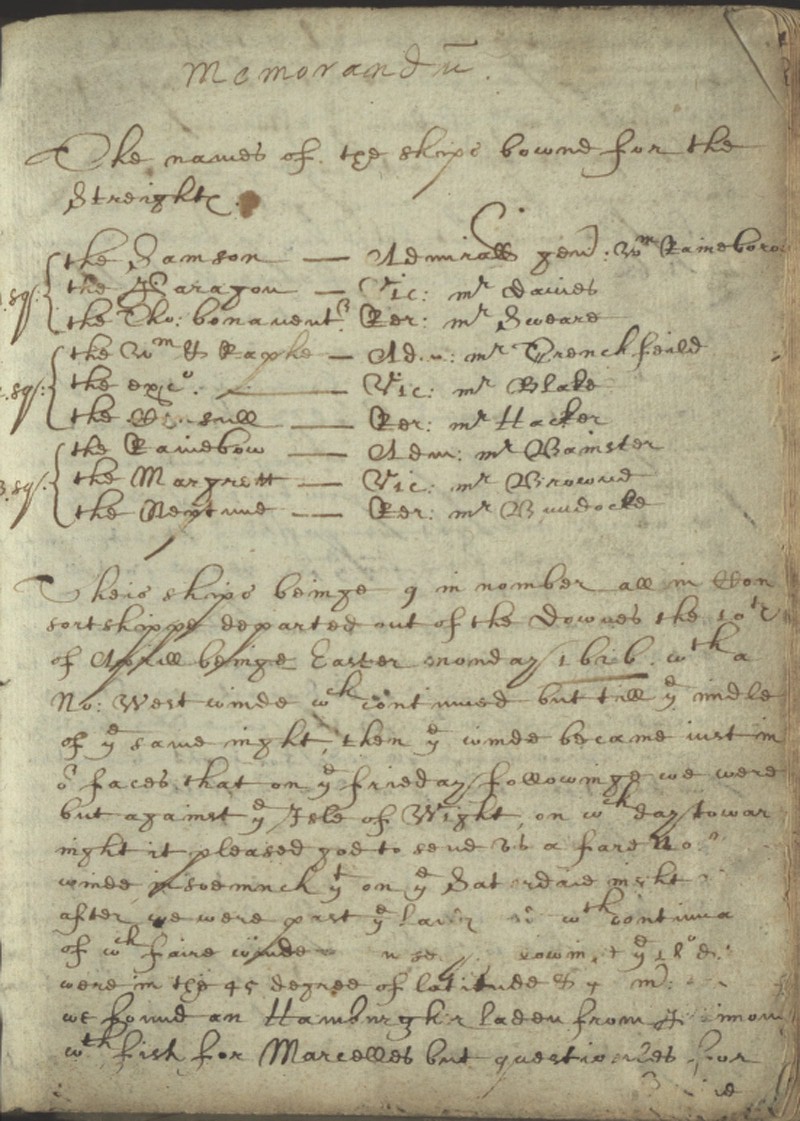 Memorandū.
The names of the ships bownd for the
Streights.
1.sq: the Samson — Admirall gen: Wm Raineborow
the Paragon — Vic: mr Davies
the Tho: bonavent: Rer: mr Sweare
2.sq: the Wm & Raphe — Ad: mr Trenchfeild
the — Vic: mr Blake
the — Rer: mr Hacker
3.sq: the Rainebow — Adm: mr Bainster
the Margrett — Vic: mr Browne
the Neptune — Rer: mr Buudocke
Theis ships beinge 9 in nomber all in Con
sortshippe departed out of the Downes the 10th
of Aprill beinge Easter monday 1626. wth a
No: West winde wch continued but till ye midle
of ye same night, then ye winde became iust in
or faces, that on ye frieday followinge we were
but against ye Isle of Wight, on wch day towar
night it pleased god to send us a fare No:
winde insoemuch yt on ye Saterdaie night
after we were past ye wth continua
of wch faire winde ye 18
were in the 45 degree of latitude &
we found an Hamburgher laden from
wth fish for Marcelles but questionles for